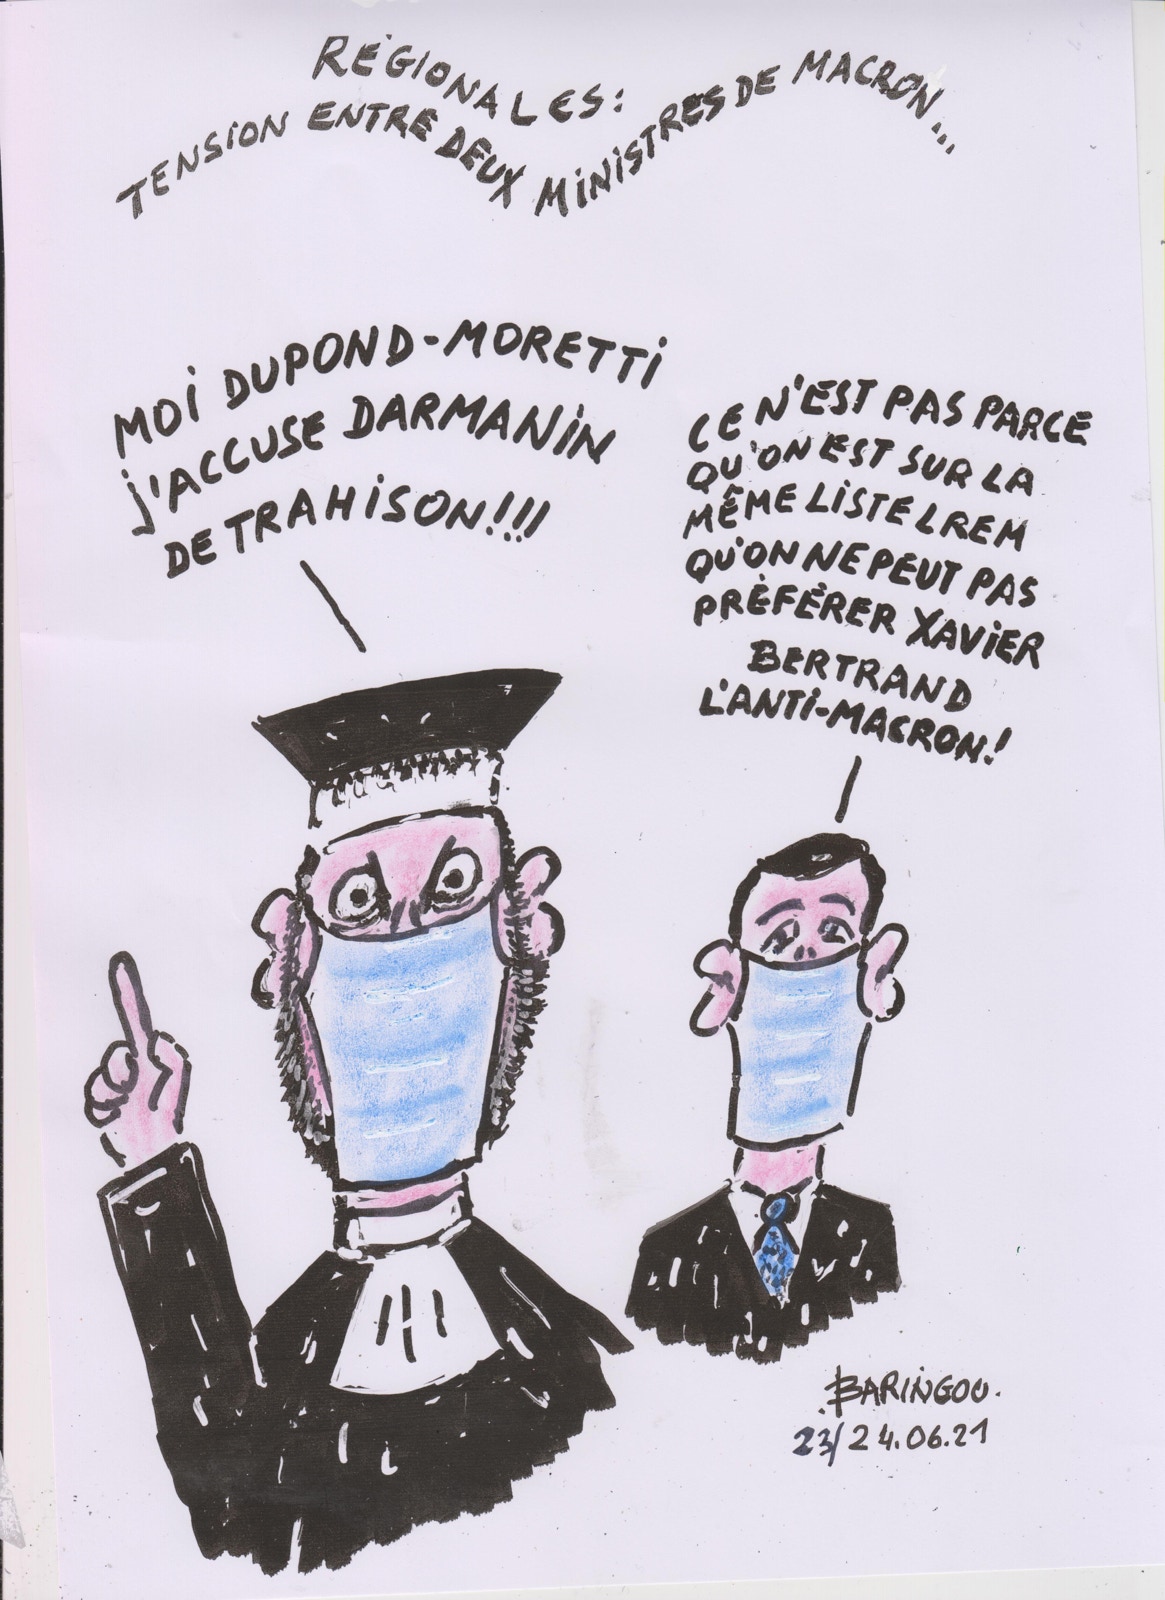 RÉGIONALES:
TENSION ENTRE DEUX MINISTRES DE MACRON...
MOI DUPOND-MORETTI
J'ACCUSE DARMANIN
DE TRAHISON!!!
CE N'EST PAS PARCE
QU'ON EST SUR LA
MÊME LISTE LREM
QU'ON NE PEUT PAS
PRÉFÉRER XAVIER
BERTRAND
L'ANTI-MACRON!
BARINGOU.
23/24.06.21